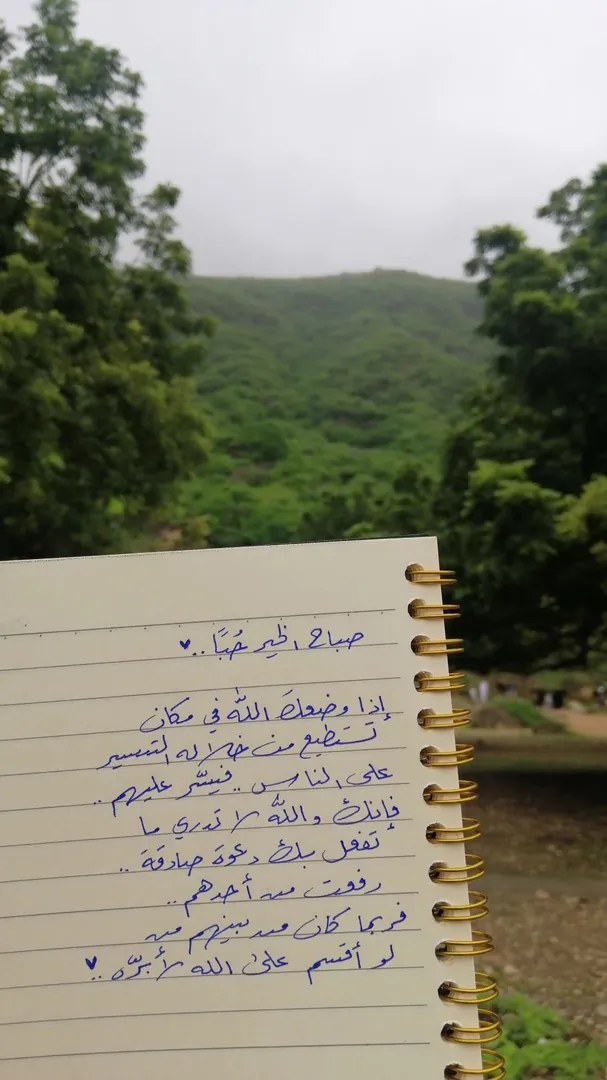 صباح الخير حُبًّا ..♥
إذا وضعكَ اللّه في مكان
تستطيع من خلاله التيسير
على الناس .. فيسّر عليهم ..
فإنك واللّه لا تدري ما
تفعل بك دعوة صادقة ..
رفعت من أحدهم ..
فربما كان من بينهم من
لو أقسم على الله لأبرّه .. ♥